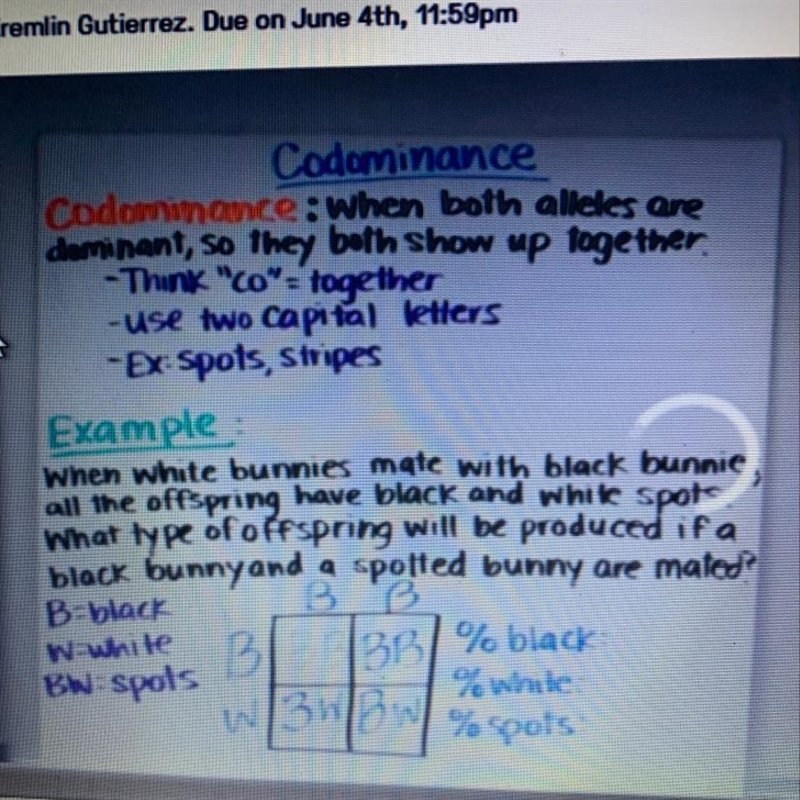 remlin Gutierrez. Due on June 4th, 11:59pm
Codominance
Codominance: When both alleles are
dominant, so they both show up together.
-Think "co"= together
-use two capital letters
-Ex: spots, stripes
Example:
When white bunnies mate with black bunnie,
all the offspring have black and white spots.
What type of offspring will be produced if a
black bunny and a spotted bunny are mated?
B=black
W=white
BW=spots
B B
B BB
W BW BW
% black:
% white:
% spots: